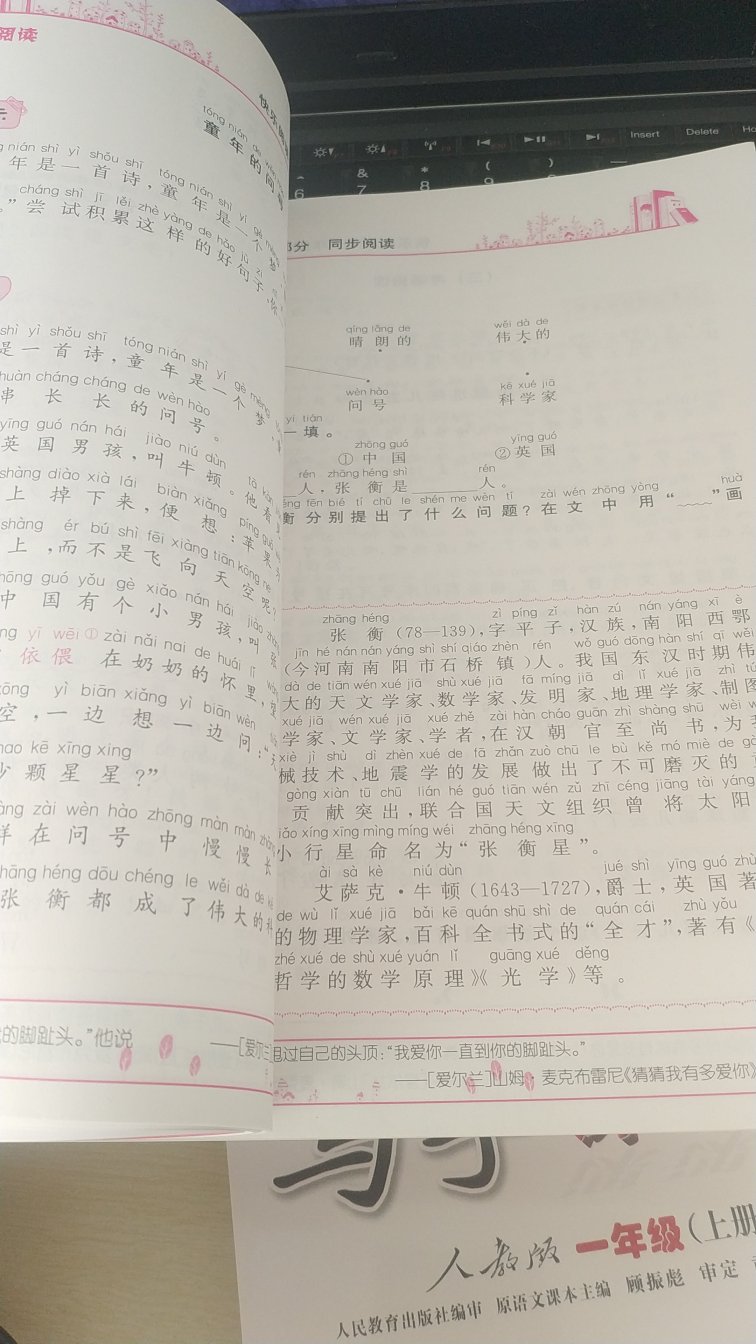 阅读
童年的问号
tóng nián
nián shì yì shǒu shī tóng nián shì yí gè mèng
年是一首诗,童年是一个梦
cháng shì jī lěi zhè yàng de hǎo jù zi
。”尝试积累这样的好句子,
shì yì shǒu shī tóng nián shì yí gè mèng
是一首诗,童年是一个梦,
chuàn cháng cháng de wèn hào
串长长的问号。
yīng guó nán hái jiào niú dùn tā kàn
英国男孩,叫牛顿。他看
shàng diào xià lái biàn xiǎng píng guǒ
上掉下来,便想:苹果
shàng ér bú shì fēi xiàng tiān kōng ne
上,而不是飞向天空呢?
zhōng guó yǒu gè xiǎo nán hái jiào zhāng
中国有个小男孩,叫张
yī wēi① zài nǎi nai de huái lǐ wàng
依偎 在奶奶的怀里,望
kōng yì biān xiǎng yì biān wèn
空,一边想一边问:“天
shao kē xīng xing
少颗星星?”
yàng zài wèn hào zhōng màn màn zhǎng
样在问号中慢慢长
zhāng héng dōu chéng le wěi dà de kē
张衡都成了伟大的科
的脚趾头。”他说
——[爱尔兰
部分 同步阅读
qíng lǎng de wěi dà de
晴朗的 伟大的
wèn hào kē xué jiā
问号 科学家
yì tián
一填。
zhōng guó yīng guó
①中国 ②英国
rén zhāng héng shì rén
人,张衡是________人。
héng fēn bié tí chū le shén me wèn tí zài wén zhōng yòng huà
衡分别提出了什么问题?在文中用“﹏﹏”画
zhāng héng zì píng zǐ hàn zú nán yáng xī è
张衡(78—139),字平子,汉族,南阳西鄂
jīn hé nán nán yáng shì shí qiáo zhèn rén wǒ guó dōng hàn shí qī wěi
(今河南南阳市石桥镇)人。我国东汉时期伟
dà de tiān wén xué jiā shù xué jiā fā míng jiā dì lǐ xué jiā zhì tú
大的天文学家、数学家、发明家、地理学家、制图
xué jiā wén xué jiā xué zhě zài hàn cháo guān zhì shàng shū wèi wǒ
学家、文学家、学者,在汉朝官至尚书,为我
xiè jì shù dì zhèn xué de fā zhǎn zuò chū le bù kě mó miè de gòng
械技术、地震学的发展做出了不可磨灭的贡
gòng xiàn tū chū lián hé guó tiān wén zǔ zhī céng jiāng tài yáng
贡献突出,联合国天文组织曾将太阳
xiǎo xíng xīng mìng míng wéi zhāng héng xīng
小行星命名为“张衡星”。
ài sà kè niú dùn jué shì yīng guó zhù
艾萨克·牛顿(1643—1727),爵士,英国著
de wù lǐ xué jiā bǎi kē quán shū shì de quán cái zhù yǒu
的物理学家,百科全书式的“全才”,著有《
zhé xué de shù xué yuán lǐ guāng xué děng
哲学的数学原理》《光学》等。
过自己的头顶:“我爱你一直到你的脚趾头。”
——[爱尔兰]山姆·麦克布雷尼《猜猜我有多爱你》
人教版 一年级(上册
人民教育出版社编审 原语文课本主编 顾振彪 审定
Insert
Delete
& * ( ) —
6 7 8 9